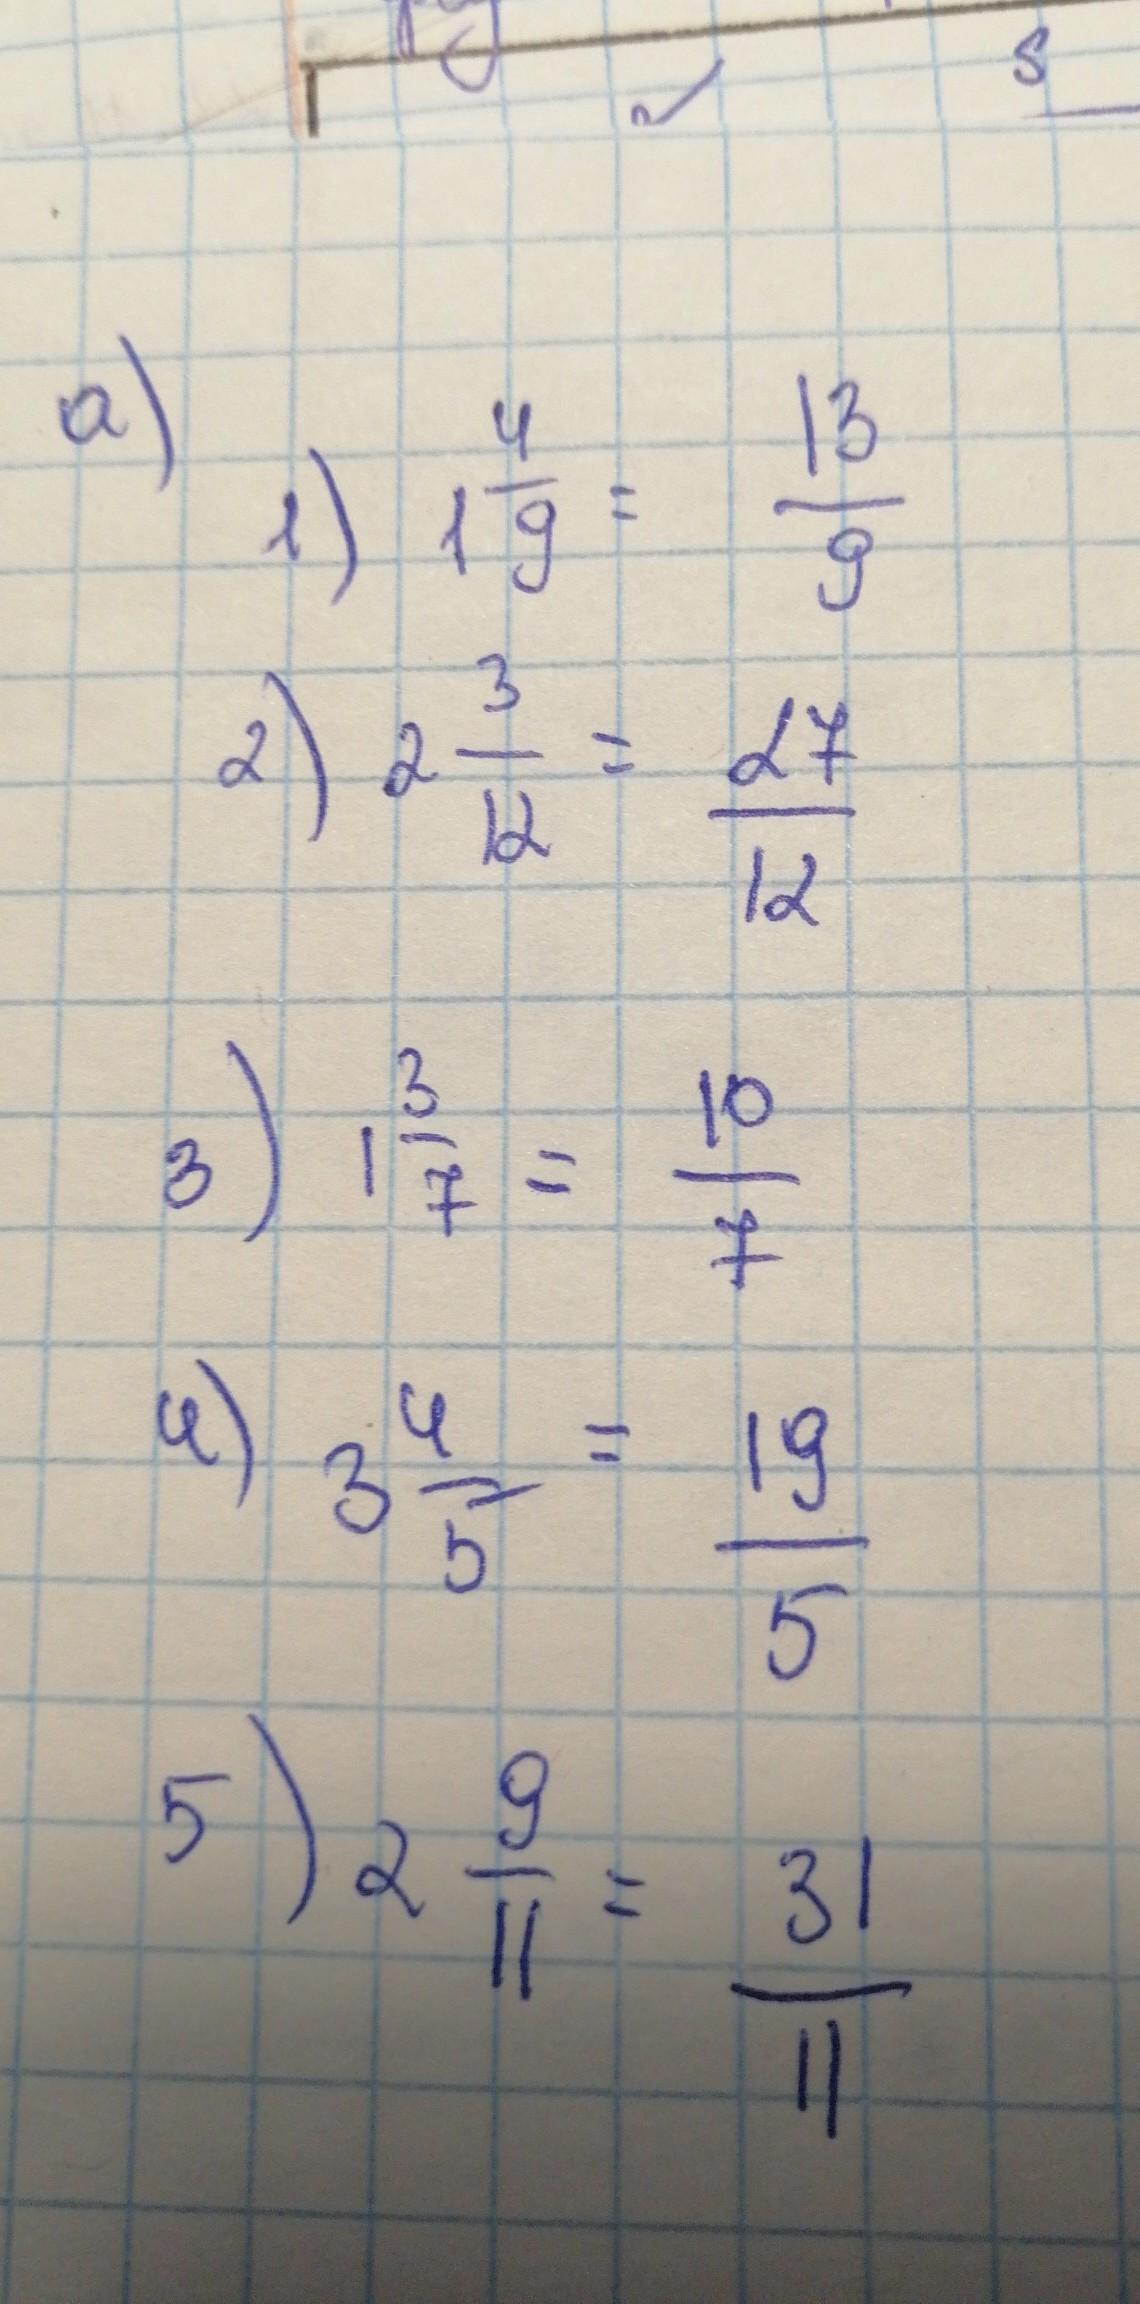 s
а)
1) 1 4/9 = 13/9
2) 2 3/12 = 27/12
3) 1 3/7 = 10/7
4) 3 4/5 = 19/5
5) 2 9/11 = 31/11